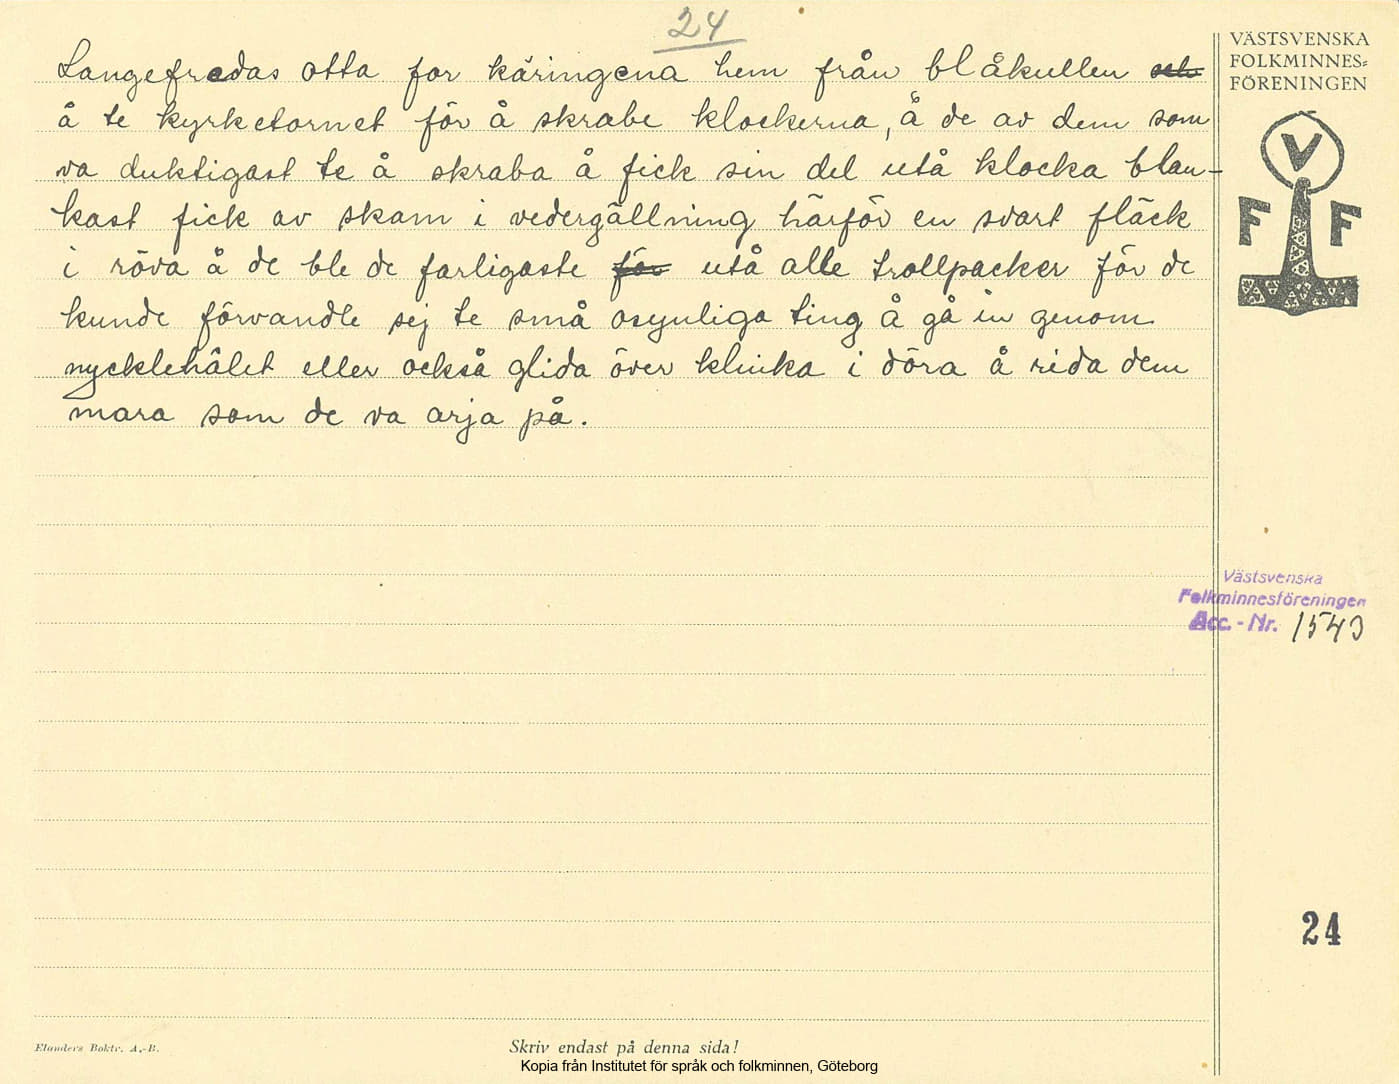 24
Langefredas otta for käringena hem från blåkullen och
å te kyrketornet för å skrabe klockerna, å de av dem som
va duktigast te å skraba å fick sin del utå klocka blan-
kast fick av skam i vedergällning härför en svart fläck
i röva å de ble de farligaste för utå alle trollpacker för de
kunde förvandle sej te små osynliga ting å gå in genom
nycklehålet eller också glida över klinka i döra å rida dem
mara som de va arja på.
VÄSTSVENSKA
FOLKMINNES=
FÖRENINGEN
V
F F
Västsvenska
Folkminnesföreningen
Acc. - Nr. 1543
24
Elanders Boktr. A.-B.
Skriv endast på denna sida!
Kopia från Institutet för språk och folkminnen, Göteborg